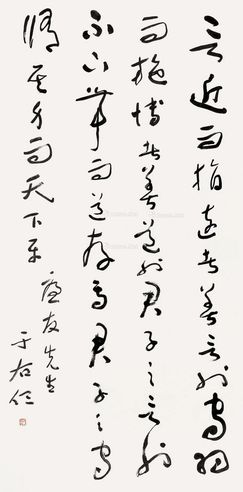 言近而指遠者善言也守約
而施博者善道也君子之言也
不下帶而道存焉君子之守
修其身而天下平
友先生
于右任